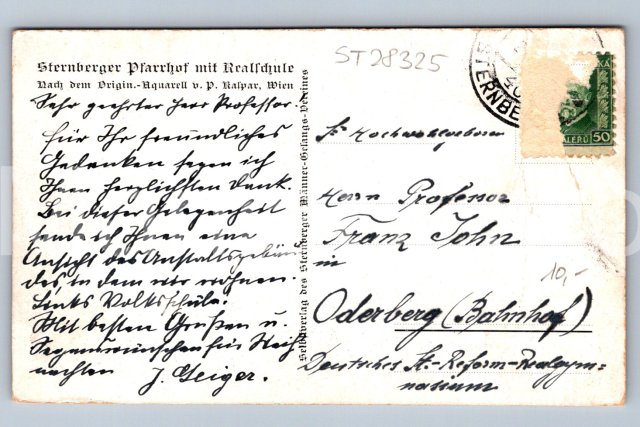 Sternberger Pfarrhof mit Realschule
Nach dem Origin.-Aquarell v. P. Kaspar, Wien
Sehr geehrter Herr Professor.
Für Ihr freundliches
Gedenken sagen ich
Ihnen herzlichsten Dank.
Bei dieser Gelegenheit
sende ich Ihnen eine
Ansicht des Anstaltsgebäu
des, in dem wir wohnen.
Links Volksschule.
Mit besten Grüßen u.
Segenswünschen für Weih
nachten J. Geiger.
Selbstverlag des Sternberger Männer-Gesangs-Vereines
ST28325
STERNBE
KA
HALERŮ 50
Sr Hochwohlgeboren
Herrn Professor
Franz John
in
Oderberg (Bahnhof)
Deutsches St.-Reform-Realgym=
nasium
10,-